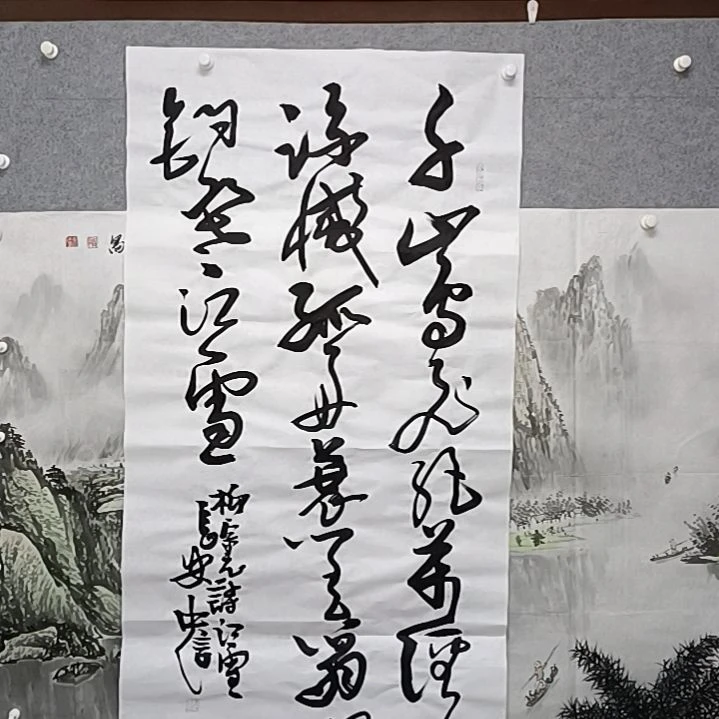 千山鳥飛絕萬徑
踪滅孤舟蓑笠翁
釣寒江雪
柳宗元詩江雪
長安